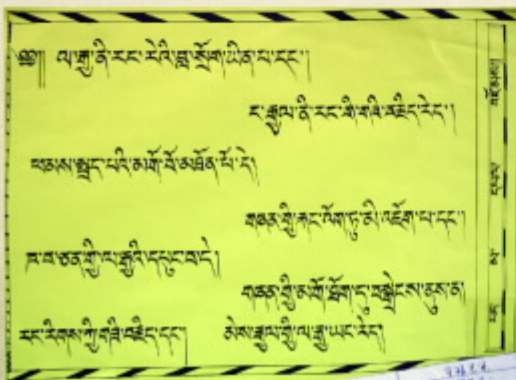 ༄༅།། ལ་རྒྱ་ནི་རང་རེའི་བླ་སྲོག་ཡིན་པ་དང་།
ང་རྒྱལ་ནི་རང་གི་གཟི་བརྗིད་རེད།
ཕ་མས་སྐྱང་པའི་མགོ་བོ་མཐོན་པོ་དེ།
གཞན་གྱི་རྐང་འོག་ཏུ་མི་འཇོག་པ་དང་།
ཁ་བ་ཅན་གྱི་ལ་རྒྱའི་དཔུང་བ་དེ།
གཞན་གྱི་མགྲོ་ཐོག་ཏུ་བསྒྲེངས་ནུས་ན།
རང་རིགས་ཀྱི་གཟི་བརྗིད་དང་།
མེས་རྒྱལ་གྱི་ལ་རྒྱ་ཡང་རེད།